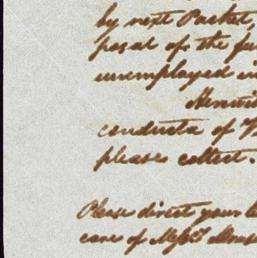 by next Packet,
posal of the fu
unemployed in
Herewith
conducta of
please collect.
Please direct your le
care of Mess